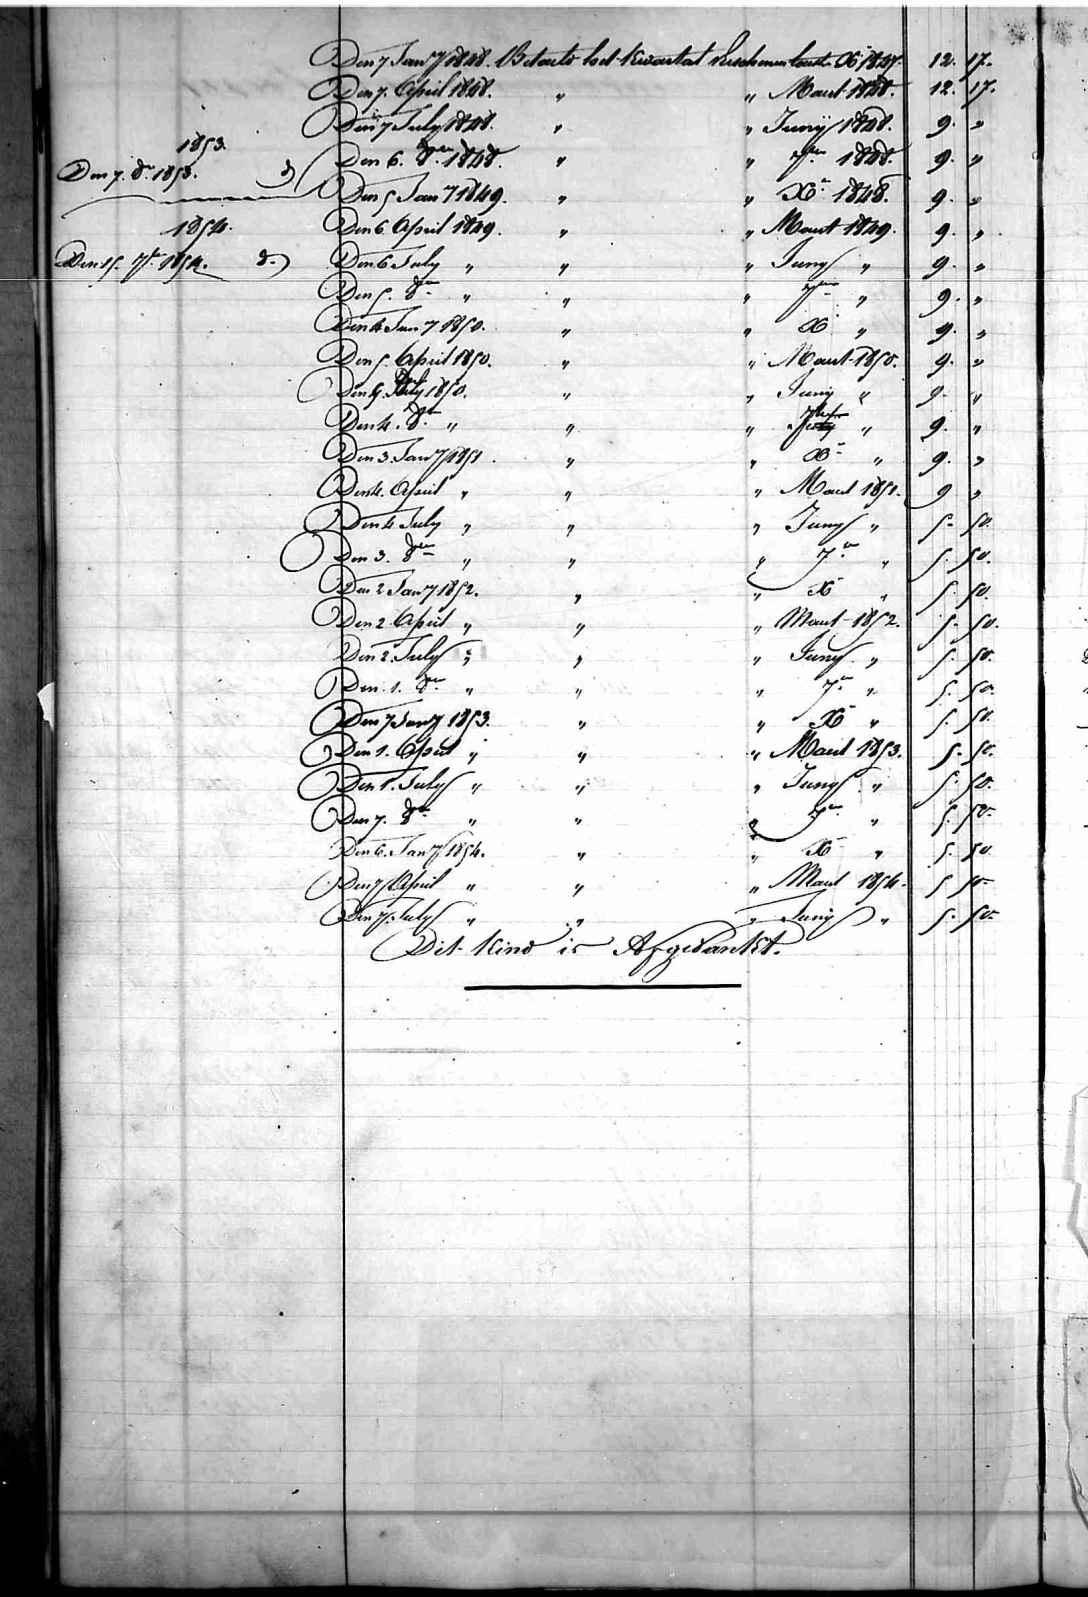 1853.
Den 7. 8r 1853. d
1854.
Den 15. 7r 1854. d.
Den 7 Jany 1848. Betaald het kwartaal verschenen X 1847. 12. 17.
Den 7. April 1848. " " Maart 1848. 12. 17.
Den 7 July 1848. " " Juny 1848. 9. "
Den 6. 8r 1848. " " 7r 1848. 9. "
Den 5 Jany 1849. " " Xr 1848. 9. "
Den 6 April 1849. " " Maart 1849. 9. "
Den 6 July " " " Juny " 9. "
Den 5. 8r " " " 7r " 9. "
Den 4 Jany 1850. " " X " 9. "
Den 5. April 1850. " " Maart 1850. 9. "
Den 5. July 1850. " " Juny " 9. "
Den 4. 8r " " " 7r " 9. "
Den 3. Jany 1851. " " Xr " 9. "
Den 4. April " " " Maart 1851. 9 "
Den 4 July " " " Juny " 5. 50.
Den 3. 8r " " " 7r " 5. 50.
Den 2 Jany 1852. " " X " 5. 50.
Den 2 April " " " Maart 1852. 5. 50.
Den 2. July " " " Juny " 5. 50.
Den 1. 8r " " " 7r " 5. 50.
Den 7 Jany 1853. " " X " 5. 50.
Den 1. April " " " Maart 1853. 5. 50.
Den 1. July " " " Juny " 5. 50.
Den 7. 8r " " " 7r " 5. 50.
Den 6. Jany 1854. " " X " 5. 50
Den 7 April " " " Maart 1854. 5 50
Den 7. July " " " Juny " 5. 50.
Dit Kind is Afgedankt.